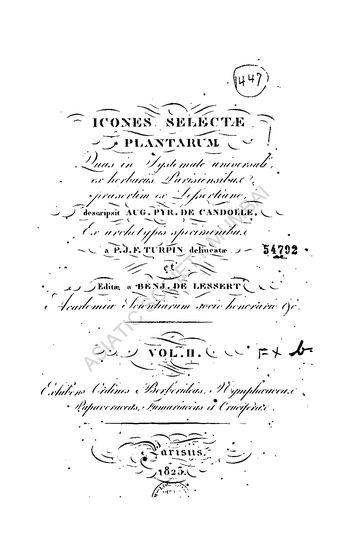 1447
ICONES SELECTÆ
PLANTARUM
Quas in Systemate universali,
ex herbariis Parisiensibus,
præsertim ex Lessertiano,
descripsit AUG. PYR. DE CANDOLLE,
Ex archetypis speciminibus
a P. J. F. TURPIN delineatæ
54792
et
Editæ a BENJ. DE LESSERT
Academiæ Scientiarum socio honorario &c.
VOL. II.
Exhibens Ordines Berberideas, Nymphæaceas
Papaveraceas, Fumariaceas et Cruciferas.
Parisiis,
1823.
ASIATIC SOCIETY MUMBAI